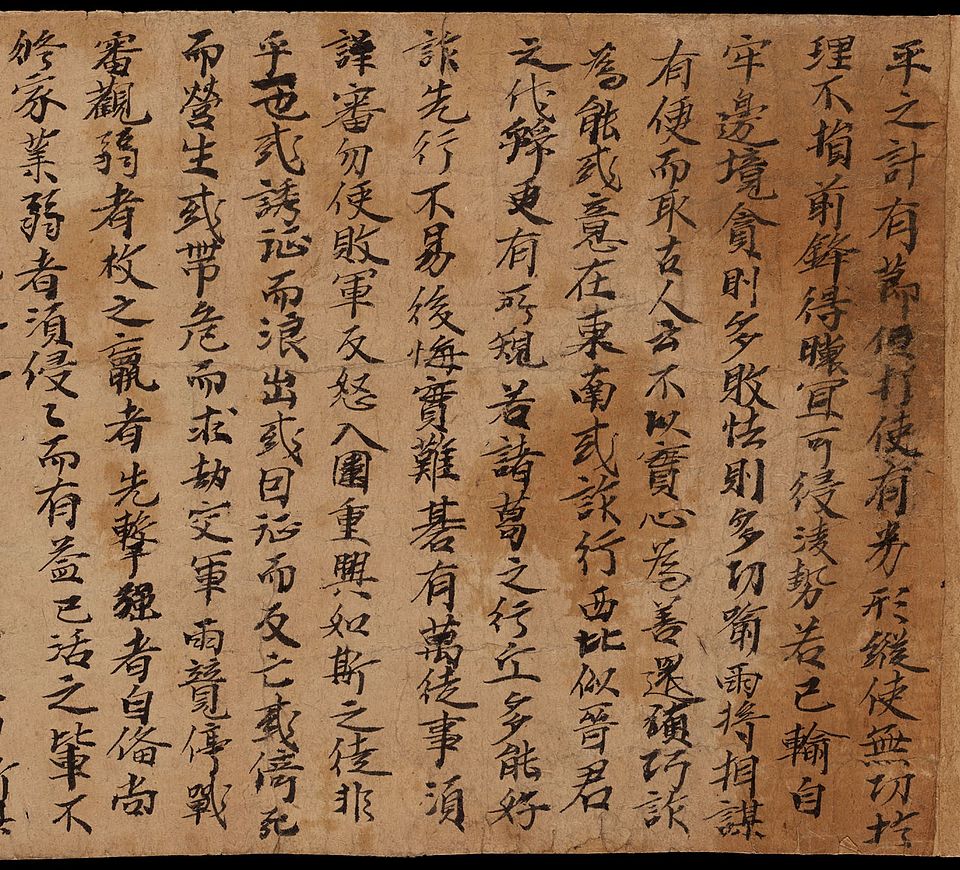 平之計有莭但打使有劣形縱使無功於
理不損前鋒得㬢冝可侵淩勢若已輸自
牢邊境貪則多敗怯則多功喻兩將相謀
有便而取古人云不以實心為善還須巧詐
為能或意在東南或詐行西北似哥君
之代號更有所窺若諸葛之行丘多能好
詐先行不易後悔實難碁有萬徒事須
謹審勿使敗軍反怒入圍重興如斯之徒非
乎一也或誘征而浪出或因征而反亡或倚死
而營生或帶危而求劫交軍兩競停戰
審觀弱者枚之羸者先擊強者自俻尚
修家業弱者須侵〻而有益已活之軰不